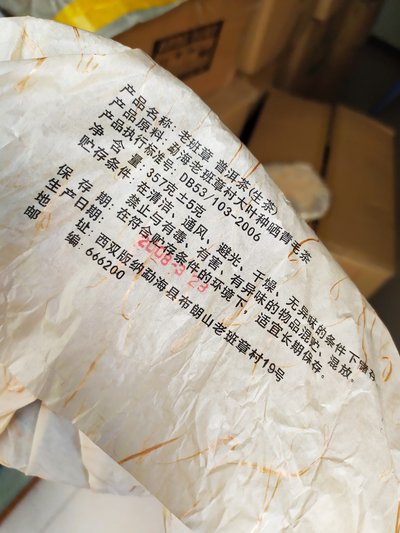 产品名称: 老班章 普洱茶(生茶)
产品原料: 勐海老班章村大叶种晒青毛茶
产品执行标准号: DB53/103-2006
净 含 量: 357克±5克
贮存条件: 在清洁、通风、避光、干燥、无异味的条件下储存
禁止与有毒、有害、有异味的物品混贮、混放。
保 存 期: 在符合贮存条件的环境下，适宜长期保存。
生产日期: 2008-3-23
地 西双版纳勐海县布朗山老班章村19号
邮 编: 666200